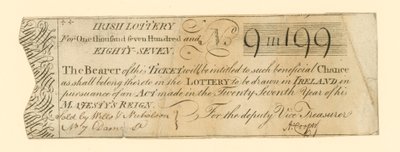 IRISH LOTTERY
For One thousand seven Hundred and
EIGHTY-SEVEN.
No. 9m199
The Bearer of this TICKET will be intitled to such beneficial Chance
as shall belong thereto in the LOTTERY to be drawn in IRELAND in
pursuance of an Act made in the Twenty Seventh Year of his
MAJESTY'S REIGN.
For the deputy Vice Treasurer
Sold by Wells & Nicholson
No 7